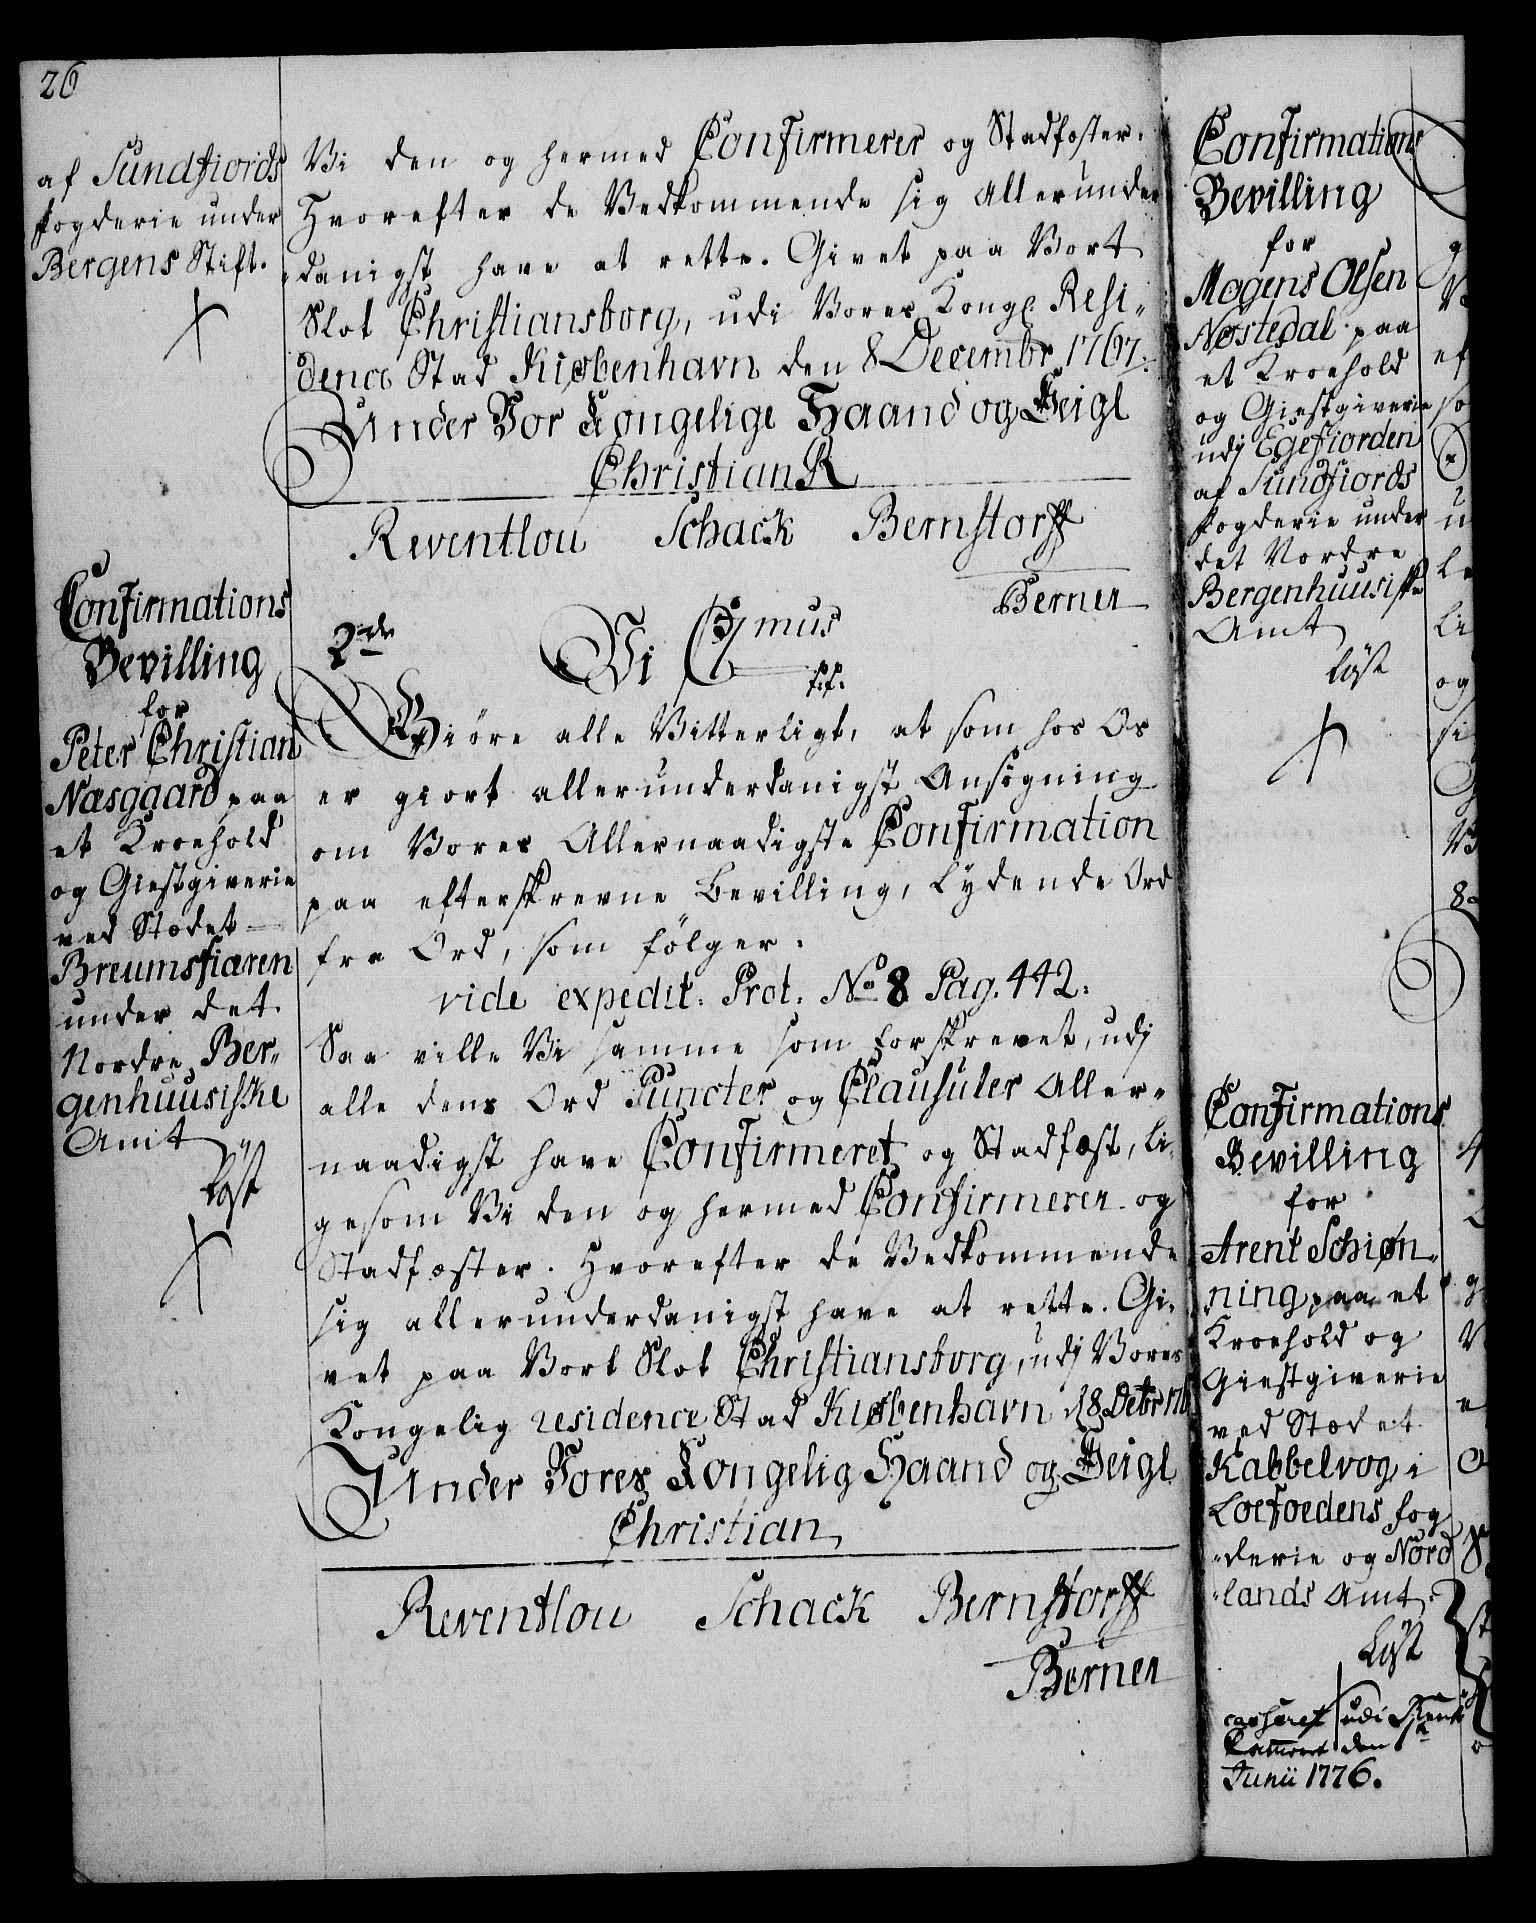 26
af Sundfiords
fogderie under
Bergens Stift.
Vi den og hermed Confirmerer og Stadfæster.
Hvorefter de Vedkommende sig Allerunder
danigst have at rette. Givet paa Vort
Slot Christiansborg, udi Vores Kongl. Resi-
dence Stad Kiøbenhavn den 8 Decembr 1767.
Under Vor Kongelige Haand og Seigl
Christian R
Reventlou Schack Bernstorff
Berner
Confirmations
Bevilling
for
Peter Christian
Næsgaard paa
et Kroehold
og Giestgiverie
ved Stædet
Breumsfiæren
under det
Nordre Ber-
genhuusiske
Amt
løst
2de
Vi C 7mus
p.p.
t.t.
Giöre alle Vitterligt, at som hos Os
er giort allerunderdanigst Ansögning
om Vores Allernaadigste Confirmation
paa efterskrevne Bevilling, Lydende Ord
fra Ord, som fölger.
vide expedit: Prot: No 8 Pag. 442:
Saa ville Vi samme som forskrevet, udj
alle dens Ord Puncter og Clausuler Aller-
naadigst have Confirmeret og Stadfæst, li-
gesom Vi den og hermed Confirmerer og
Stadfæster. Hvorefter de Vedkommende
sig allerunderdanigst have at rette. Gi-
vet paa Vort Slot Christiansborg, udj Vores
Kongelig residence Stad Kiøbenhavn d 8 Decbr 176
Under Vores Kongelig Haand og Seigl
Christian
Reventlou Schack Bernstorff
Berner
Confirmations
Bevilling
for
Mogens Olsen
Nøstedal paa
et Kroehold
og Giestgiverie
udj Egefiorden
af Sundfiords
fogderie under
det Nordre
Bergenhuusiske
Amt
løst
Confirmations
Bevilling
for
Arent Schiøn-
ning paa et
Kroehold og
Giestgiverie
ved Stædet
Kabbelvog i
Loefoedens fog
derie og Nord
lands Amt.
løst
udi
den
Junii 1776.